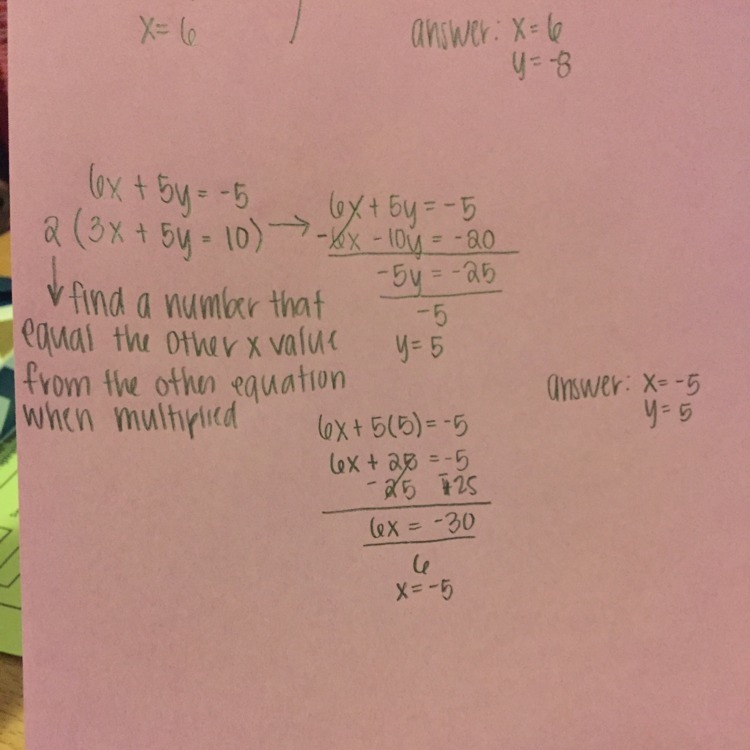 x = 6
answer: x = 6
y = -8
6x + 5y = -5
2 (3x + 5y = 10) →
↓ find a number that
equal the other x value
from the other equation
when multiplied
6x + 5y = -5
-6x - 10y = -20
-5y = -25
-5
y = 5
6x + 5(5) = -5
6x + 25 = -5
- 25 -25
6x = -30
6
x = -5
answer: x = -5
y = 5